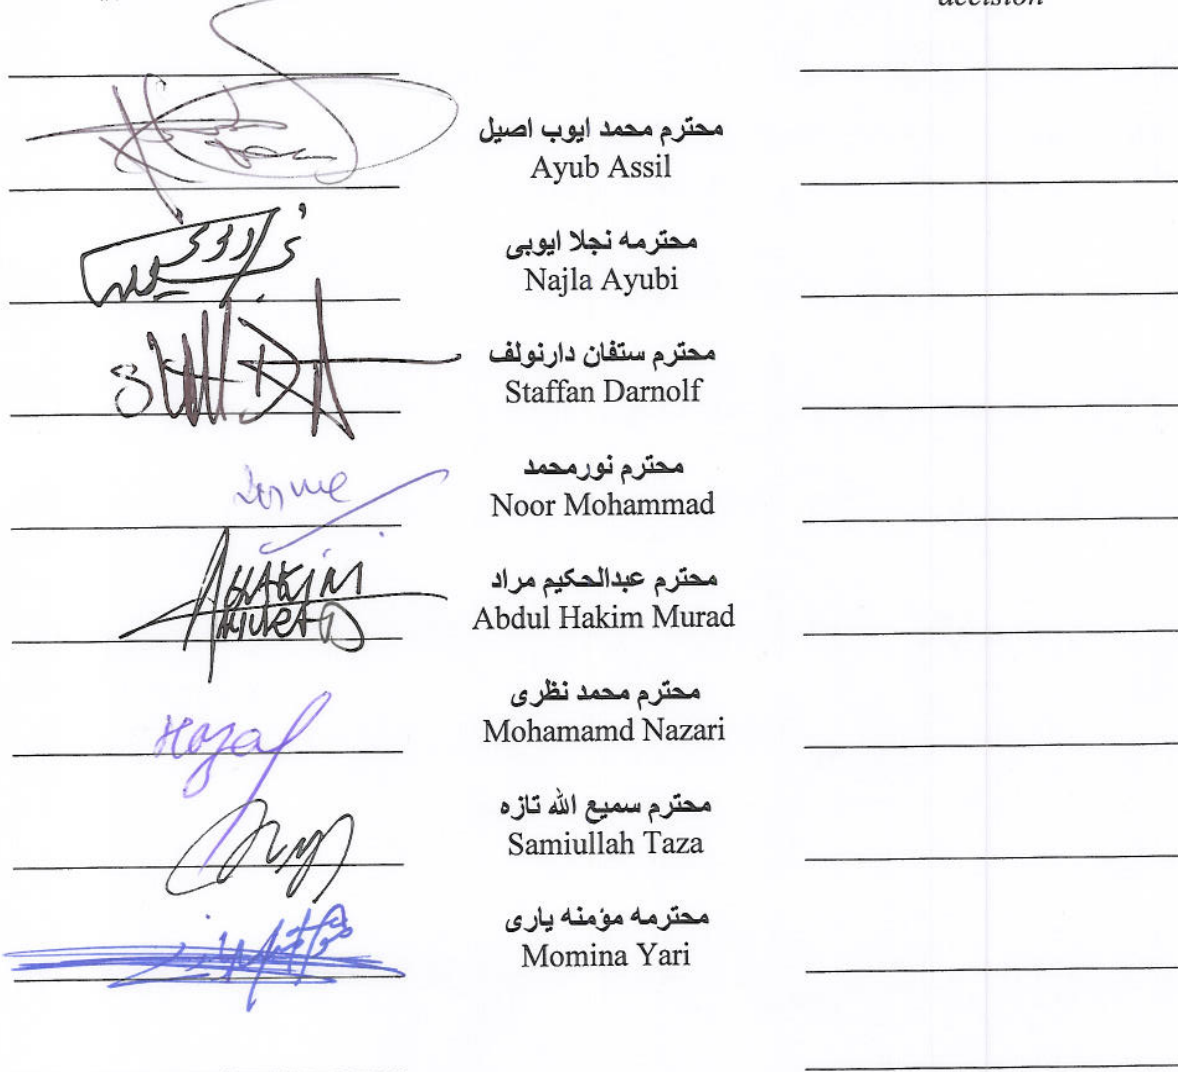 decision
محترم محمد ایوب اصیل
Ayub Assil
محترمه نجلا ایوبی
Najla Ayubi
محترم ستفان دارنولف
Staffan Darnolf
محترم نورمحمد
Noor Mohammad
محترم عبدالحکیم مراد
Abdul Hakim Murad
AB HAKIMI
MURAD
محترم محمد نظری
Mohamamd Nazari
محترم سمیع الله تازه
Samiullah Taza
محترمه مؤمنه یاری
Momina Yari